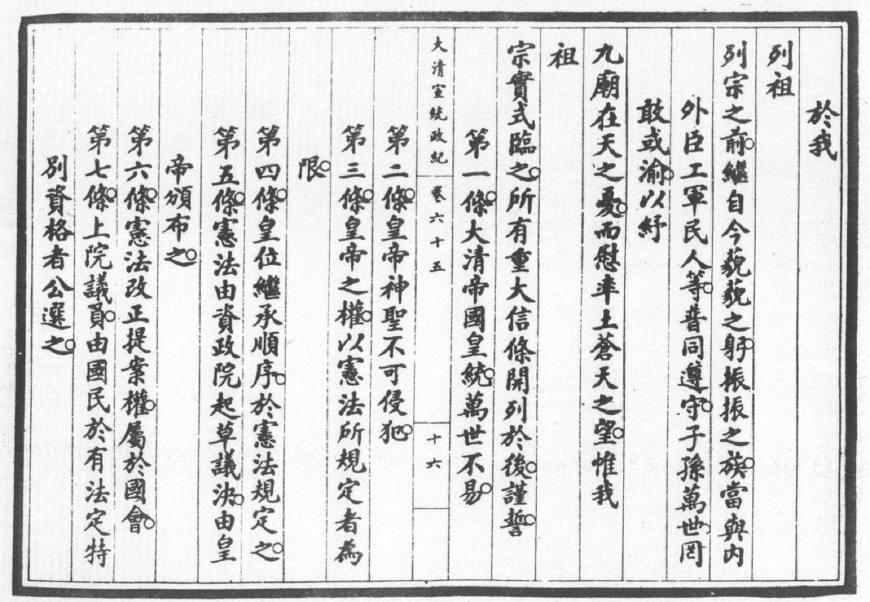 於我
列祖
列宗之前。繼自今藐藐之躬。振振之族。當與內
外臣工軍民人等。普同遵守。子孫萬世。罔
敢或渝。以紓
九廟在天之憂。而慰率土蒼天之望。惟我
祖
宗實式臨之。所有重大信條。開列於後。謹誓。
第一條。大清帝國皇統。萬世不易。
大清宣統政紀 卷六十五 十六
第二條。皇帝神聖不可侵犯。
第三條。皇帝之權。以憲法所規定者為
限。
第四條。皇位繼承順序。於憲法規定之。
第五條。憲法由資政院起草議決。由皇
帝頒布之。
第六條。憲法改正提案權。屬於國會。
第七條。上院議員。由國民於有法定特
別資格者公選之。